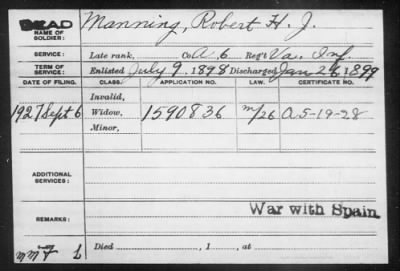 DEAD
NAME OF SOLDIER: Manning, Robert H. J.
SERVICE: Late rank, Co. A. 6 Reg't Va. Inf
TERM OF SERVICE: Enlisted July 9, 1898 Discharged Jan 26 1899
DATE OF FILING. CLASS. APPLICATION NO. LAW. CERTIFICATE NO.
Invalid,
1927 Sept 6 Widow, 1590836 m/26 A 5-19-28
Minor,
ADDITIONAL SERVICES:
War with Spain
REMARKS:
Died , 1 , at